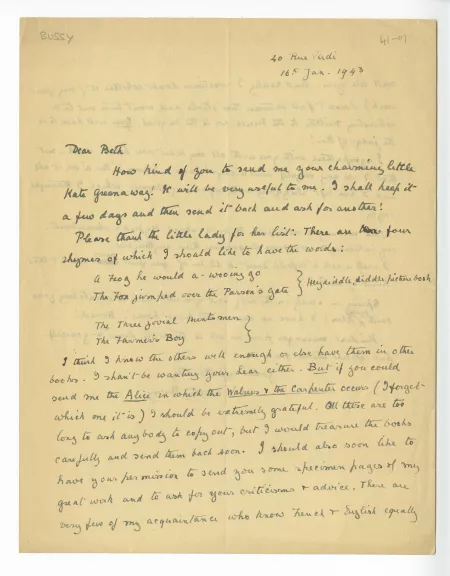 BUSSY
40 Rue Verdi
16th Jan. 1943
Dear Beth
How kind of you to send me your charming little
Kate Greenaway! It will be very useful to me. I shall keep it
a few days and then send it back and ask for another!
Please thank the little lady for her list. There are four
rhymes of which I should like to have the words:
A Frog he would a-wooing go
The Fox jumped over the Parson's gate } Heydiddle diddle picture book
The Three Jovial Huntsmen
The Farmer's Boy }
I think I know the others well enough or else have them in other
books. I shan't be wanting your Lear either. But if you could
send me the Alice in which the Walrus & the Carpenter occurs (I forget
which one it is) I should be extremely grateful. All these are too
long to ask anybody to copy out, but I would treasure the books
carefully and send them back soon. I should also soon like to
have your permission to send you some specimen pages of my
great work and to ask for your criticisms & advice. There are
very few of my acquaintance who know French & English equally